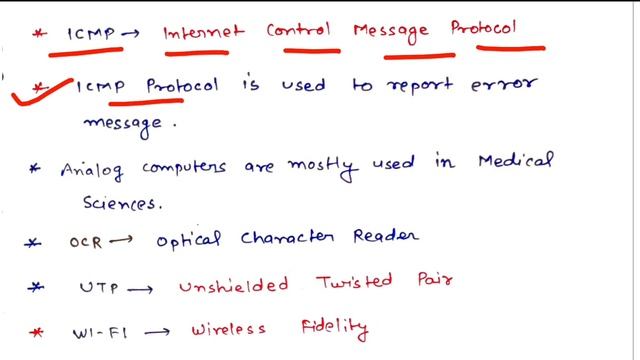 * ICMP → Internet Control Message Protocol
* ICMP Protocol is used to report error
message.
* Analog computers are mostly used in Medical
Sciences.
* OCR → Optical Character Reader
* UTP → Unshielded Twisted Pair
* WI-FI → Wireless Fidelity